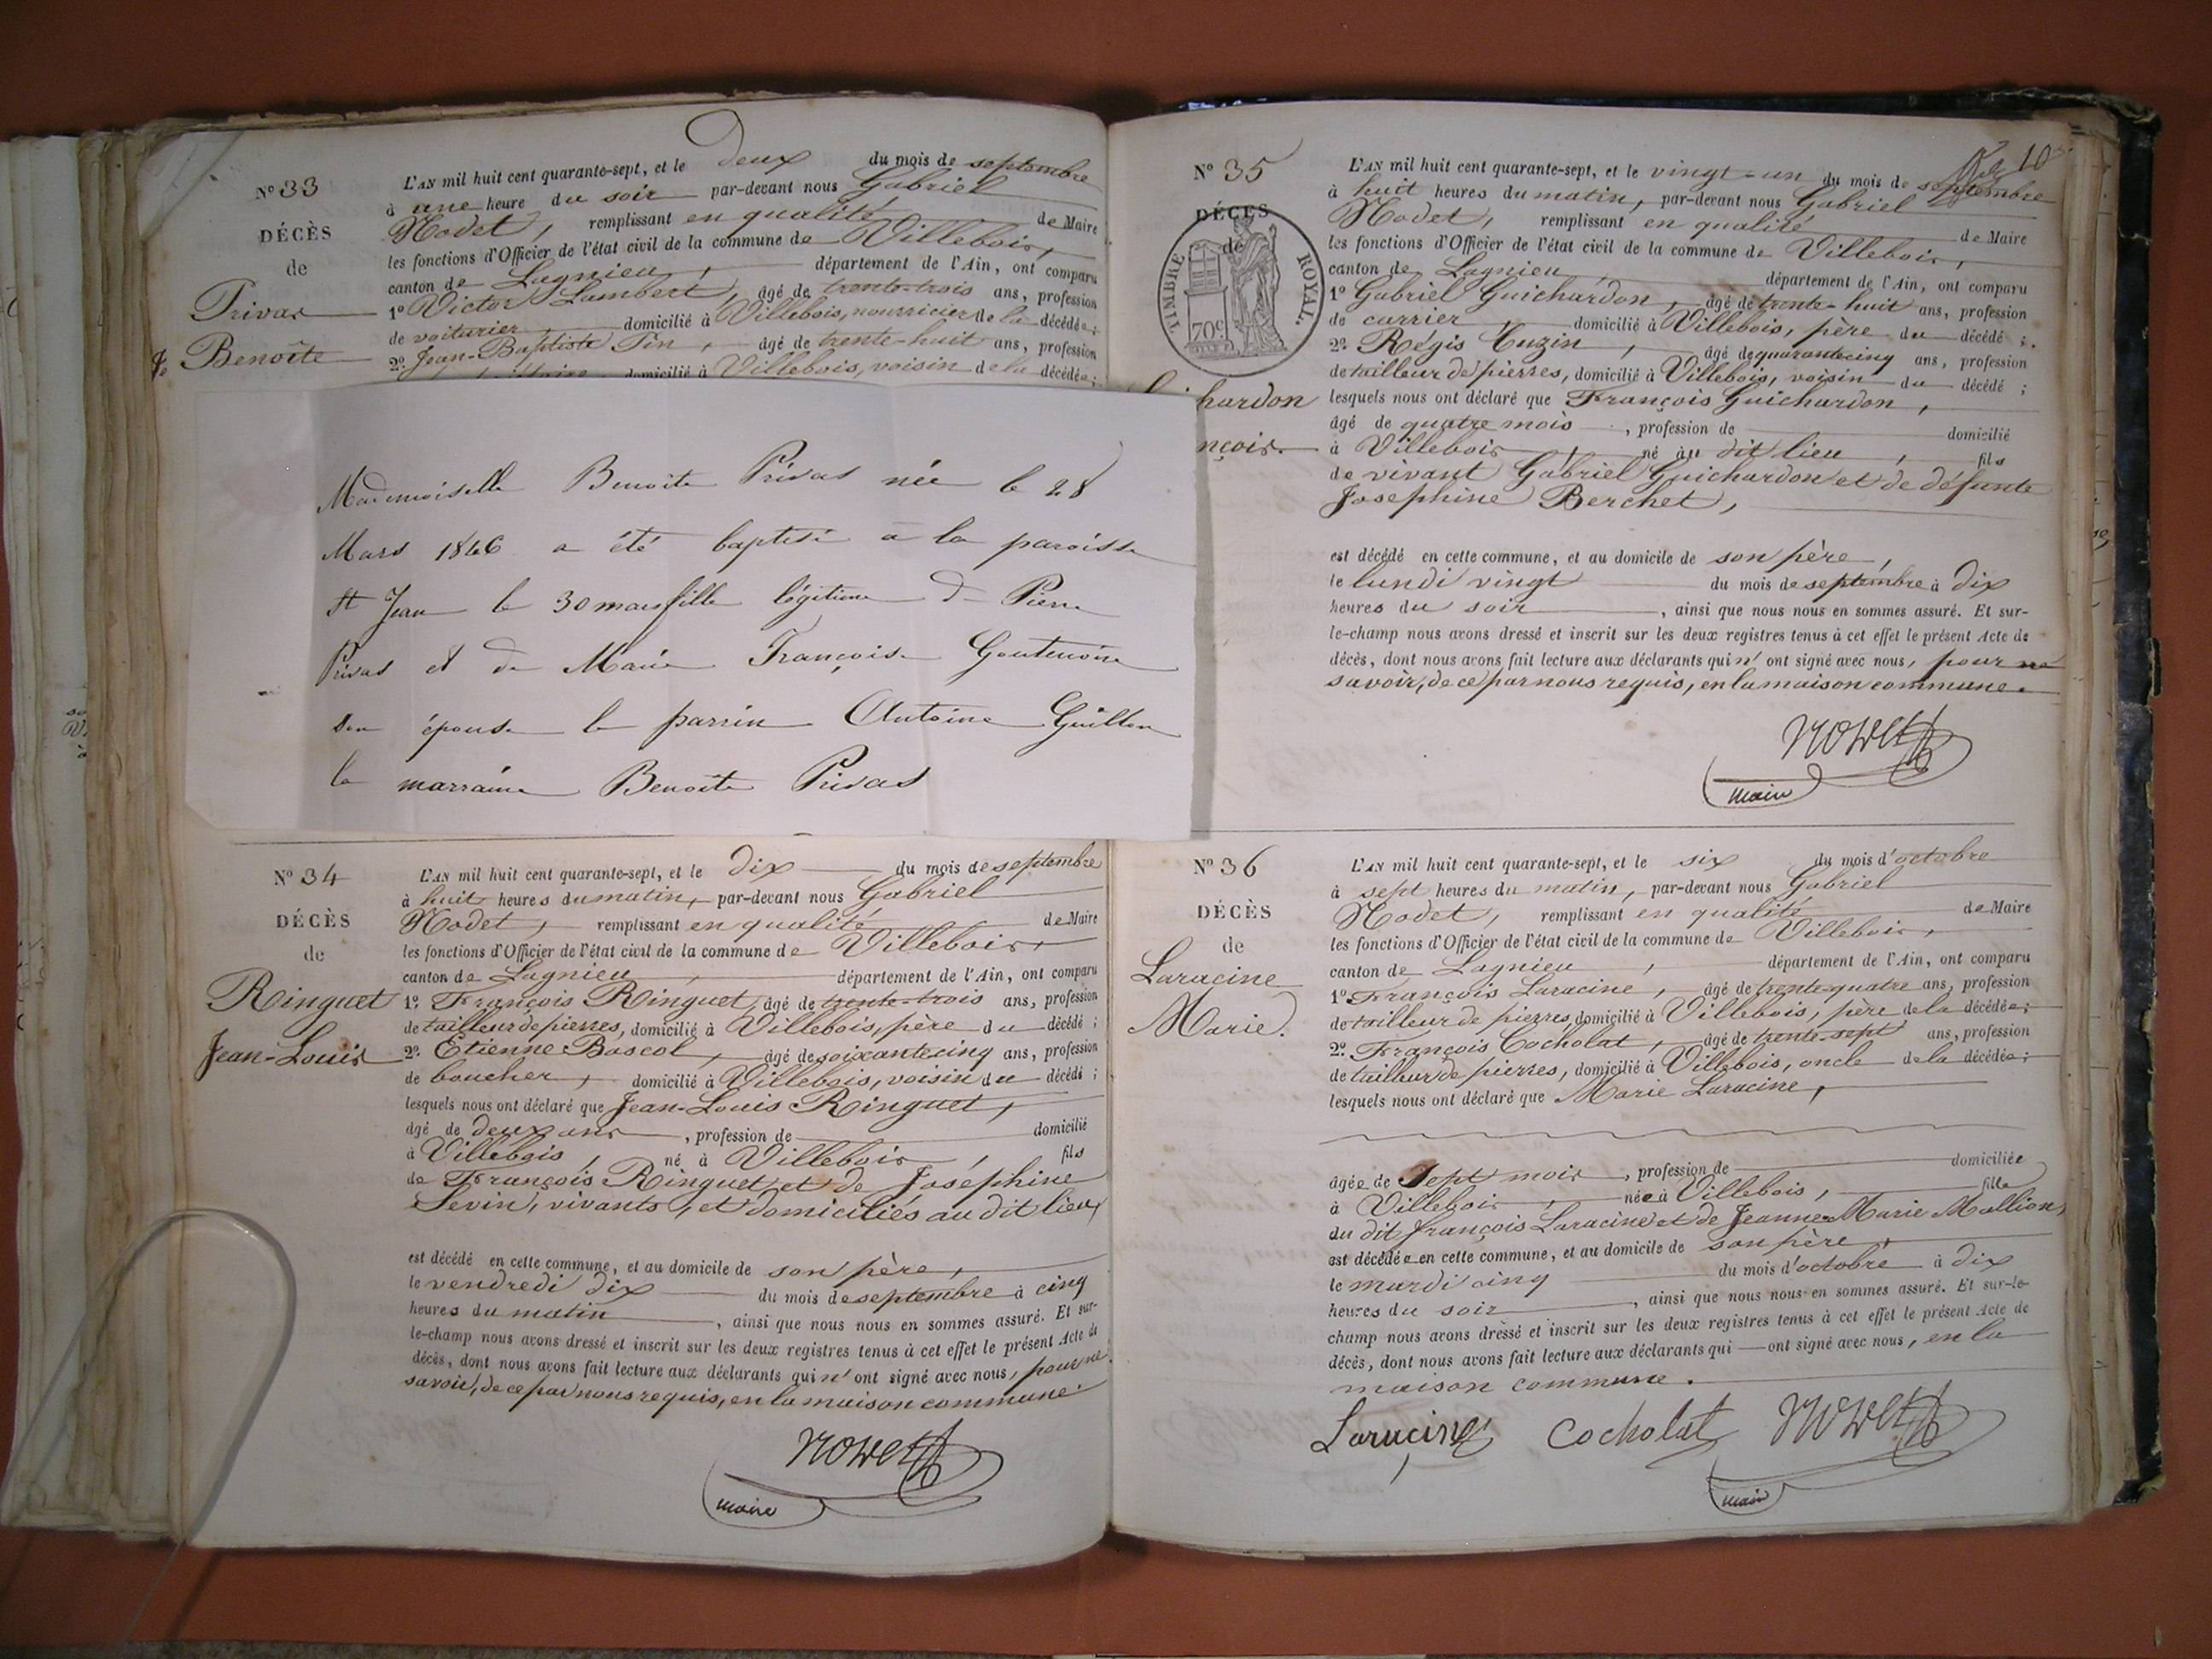 N° 33
DÉCÈS
de
Privas
Benoîte
L'AN mil huit cent quarante-sept, et le deux du mois de septembre
à une heure du soir par-devant nous Gabriel
Nodet, remplissant en qualité de Maire
les fonctions d'Officier de l'état civil de la commune de Villebois,
canton de Lagnieu, département de l'Ain, ont comparu
1° Victor Lambert, âgé de trente-trois ans, profession
de voiturier, domicilié à Villebois, nourricier de la décédée;
2° Jean-Baptiste Pin, âgé de trente-huit ans, profession
domicilié à Villebois, voisin de la décédée;
Mademoiselle Benoite Privas née le 28
Mars 1846 a été baptisé a la paroisse
St Jean le 30 mars fille légitime d Pierre
Privas et de Marie Françoise
son épouse le parrin Antoine Guillon
la marraine Benoîte Privas
N° 34
DÉCÈS
de
Ringuet
Jean-Louis
L'AN mil huit cent quarante-sept, et le dix du mois de septembre
à huit heures du matin, par-devant nous Gabriel
Nodet, remplissant en qualité de Maire
les fonctions d'Officier de l'état civil de la commune de Villebois,
canton de Lagnieu, département de l'Ain, ont comparu
1° François Ringuet, âgé de trente-trois ans, profession
de tailleur de pierres, domicilié à Villebois, père du décédé;
2° Etienne Bascol, âgé de soixante cinq ans, profession
de boucher, domicilié à Villebois, voisin du décédé;
lesquels nous ont déclaré que Jean-Louis Ringuet,
âgé de deux ans, profession de domicilié
à Villebois, né à Villebois, fils
de François Ringuet et de Joséphine
Sevin, vivants, et domiciliés au dit lieu,
est décédé en cette commune, et au domicile de son père,
le vendredi dix du mois de septembre à cinq
heures du matin, ainsi que nous nous en sommes assuré. Et sur-
le-champ nous avons dressé et inscrit sur les deux registres tenus à cet effet le présent Acte de
décès, dont nous avons fait lecture aux déclarants qui n'ont signé avec nous, pour ne
savoir, de ce par nous requis, en la maison commune.
Nodet
maire
N° 35
DÉCÈS
de
TIMBRE ROYAL.
70c
hardon
nçois.
L'AN mil huit cent quarante-sept, et le vingt-un du mois de septembre
à huit heures du matin, par-devant nous Gabriel
Nodet, remplissant en qualité de Maire
les fonctions d'Officier de l'état civil de la commune de Villebois,
canton de Lagnieu, département de l'Ain, ont comparu
1° Gabriel Guichardon, âgé de trente-huit ans, profession
de carrier, domicilié à Villebois, père du décédé;
2° Régis Cuzin, âgé de quarante cinq ans, profession
de tailleur de pierres, domicilié à Villebois, voisin du décédé;
lesquels nous ont déclaré que François Guichardon,
âgé de quatre mois, profession de domicilié
à Villebois, né au dit lieu, fils
de vivant Gabriel Guichardon et de défunte
Josephine Berchet,
est décédé en cette commune, et au domicile de son père,
le lundi vingt du mois de septembre à dix
heures du soir, ainsi que nous nous en sommes assuré. Et sur-
le-champ nous avons dressé et inscrit sur les deux registres tenus à cet effet le présent Acte de
décès, dont nous avons fait lecture aux déclarants qui n'ont signé avec nous, pour ne
savoir, de ce par nous requis, en la maison commune.
Nodet
maire
N° 36
DÉCÈS
de
Laracine
Marie.
L'AN mil huit cent quarante-sept, et le six du mois d'octobre
à sept heures du matin, par-devant nous Gabriel
Nodet, remplissant en qualité de Maire
les fonctions d'Officier de l'état civil de la commune de Villebois,
canton de Lagnieu, département de l'Ain, ont comparu
1° François Laracine, âgé de trente-quatre ans, profession
de tailleur de pierres, domicilié à Villebois, père de la décédée;
2° François Cocholat, âgé de trente-sept ans, profession
de tailleur de pierres, domicilié à Villebois, oncle de la décédée;
lesquels nous ont déclaré que Marie Laracine,
âgée de sept mois, profession de domiciliée
à Villebois, née à Villebois, fille
du dit françois Laracine et de Jeanne-Marie Mollion,
est décédée en cette commune, et au domicile de son père,
le mardi cinq du mois d'octobre à dix
heures du soir, ainsi que nous nous en sommes assuré. Et sur-le-
champ nous avons dressé et inscrit sur les deux registres tenus à cet effet le présent Acte de
décès, dont nous avons fait lecture aux déclarants qui ont signé avec nous, en la
maison commune.
Laracine Cocholat Nodet
maire